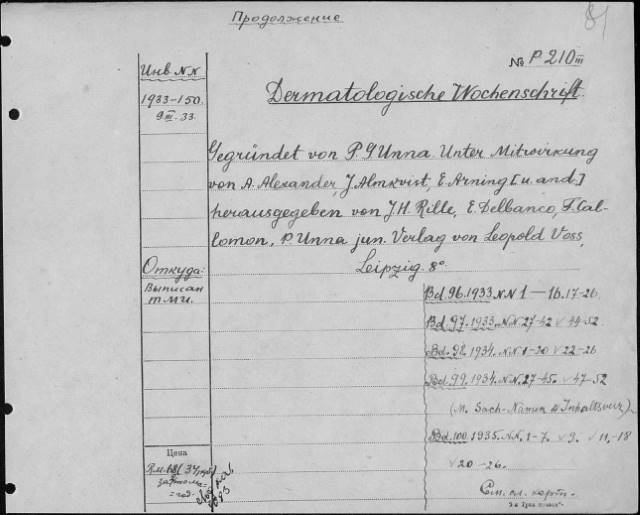 Продолжение
81
Инв NN
№ P 210 III
1933-150.
9 III. 33.
Dermatologische Wochenschrift.
Gegründet von P. G Unna. Unter Mitwirkung
von A. Alexander, J. Almkvist, E. Arning [u. and.]
herausgegeben von J. H. Rille, E. Delbanco, F. Cal-
lomon, P. Unna jun. Verlag von Leopold Voss,
Leipzig. 8°
Откуда:
Выписан
Bd. 96. 1933. N.N 1 — 16. 17-26.
Bd. 97. 1933. N.N. 27-42 v 44-52
Bd. 98. 1934. N.N. 1-20 v 22-26
Bd. 99. 1934. N.N. 27-45. v 47-52
(M. Sach- Namen u Inhaltsverz.)
Bd. 100. 1935. N.N. 1-7. v 9. v 11,-18
v 20-26.
Цена
См. пл. карт.